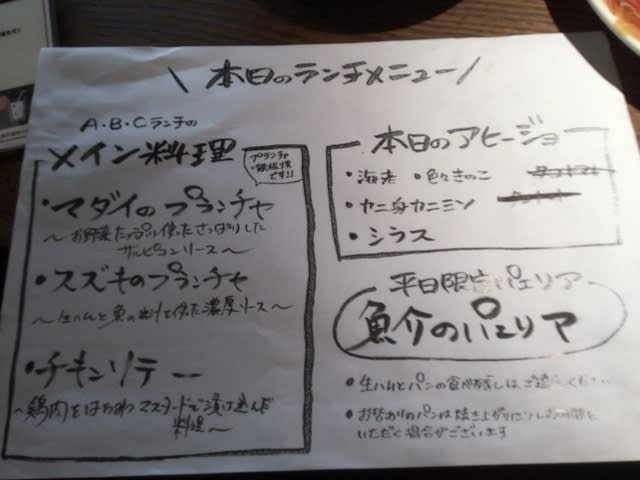 本日のランチメニュー
A・B・Cランチの
メイン料理
プランチャ
=鉄板焼
です!!
・マダイのプランチャ
〜お野菜たっぷり使ったさっぱりした
サルピコンソース〜
・スズキのプランチャ
〜生ハムと魚の出汁を使った濃厚ソース〜
・チキンソテー
〜鶏肉をはちみつマスタードで漬け込んだ
料理〜
本日のアヒージョ
・海老 ・色々きのこ
・カニ身カニミソ
・シラス
平日限定パエリア
魚介のパエリア
・生ハムとパンの食べ残しはご遠慮ください
・お替わりのパンは焼き上がりに少しお時間を
いただく場合がございます